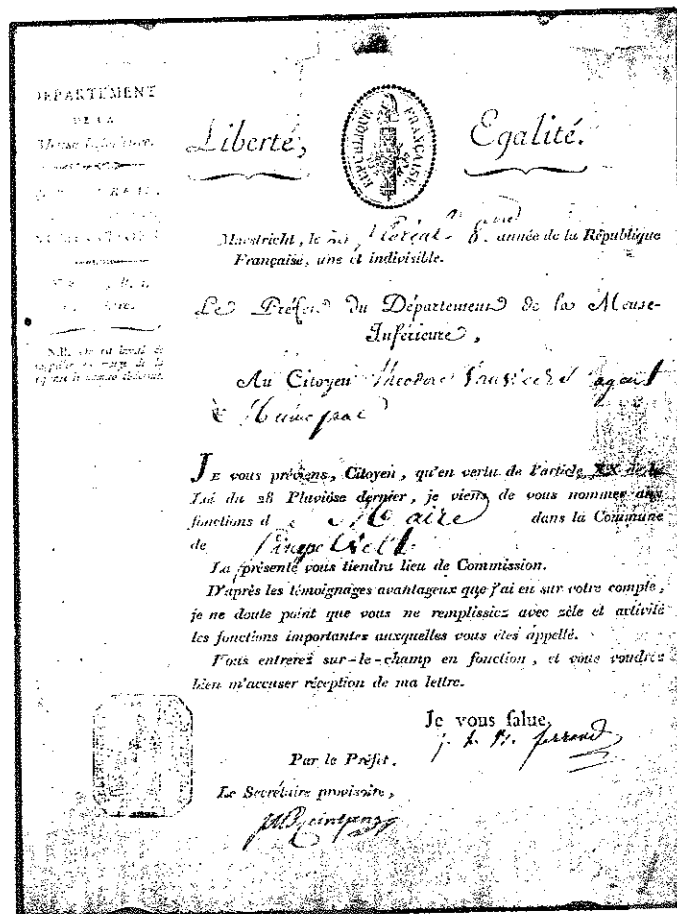 DÉPARTEMENT
DE LA
Meuse-Inférieure.
N.B.
Liberté,
RÉPUBLIQUE FRANÇAISE.
Egalité.
Maestricht, le Floréal 8. année de la République
Française, une et indivisible.
Le Préfet du Département de la Meuse-
Inférieure,
Au Citoyen Theodore agent
Municipal
JE vous préviens, Citoyen, qu'en vertu de l'article XX de la
Loi du 28 Pluviôse dernier, je viens de vous nommer aux
fonctions de Maire dans la Commune
de
La présente vous tiendra lieu de Commission.
D'après les témoignages avantageux que j'ai eu sur votre compte,
je ne doute point que vous ne remplissiez avec zèle et activité
les fonctions importantes auxquelles vous êtes appellé.
Vous entrerez sur-le-champ en fonction, et vous voudrez
bien m'accuser réception de ma lettre.
Je vous salue,
ferrand
Par le Préfet.
Le Secrétaire provisoire,